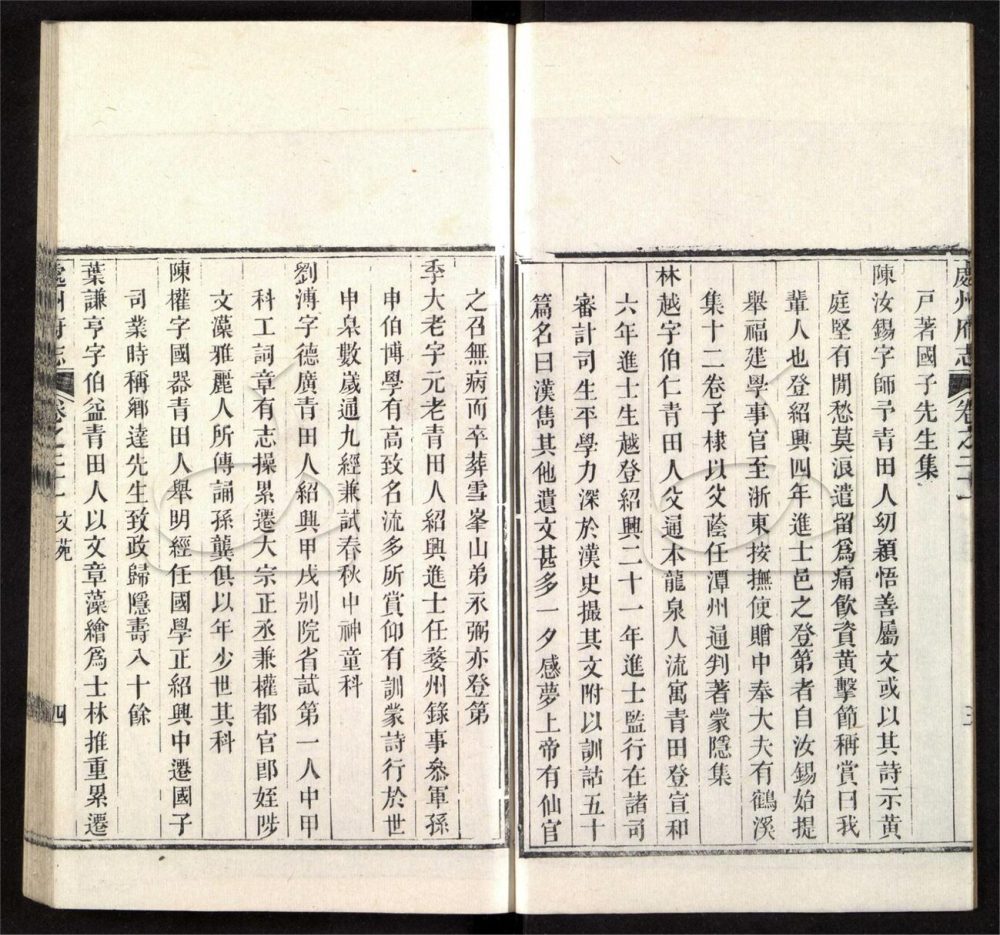 處州府志
卷之二十
三
戸著國子先生集
陳汝錫字師予青田人幼穎悟善屬文或以其詩示黃
庭堅有閒愁莫浪遣留爲痛飮資黃擊節稱賞曰我
輩人也登紹興四年進士邑之登第者自汝錫始提
舉福建學事官至浙東按撫使贈中奉大夫有鶴溪
集十二卷子棣以父蔭任潭州通判著蒙隱集
林越字伯仁青田人父通本龍泉人流寓青田登宣和
六年進士生越登紹興二十一年進士監行在諸司
審計司生平學力深於漢史撮其文附以訓詁五十
篇名曰漢雋其他遺文甚多一夕感夢上帝有仙官
之召無病而卒葬雪峯山弟永弼亦登第
季大老字元老青田人紹興進士任婺州錄事叅軍孫
申伯博學有高致名流多所賞仰有訓蒙詩行於世
申皐數歲通九經兼試春秋中神童科
劉溥字德廣青田人紹興甲戌別院省試第一人中甲
科工詞章有志操累遷大宗正丞兼權都官郎姪陟
文藻雅麗人所傳誦孫龔俱以年少世其科
陳權字國器青田人舉明經任國學正紹興中遷國子
司業時稱鄉達先生致政歸隱壽八十餘
葉謙亨字伯益青田人以文章藻繪爲士林推重累遷
處州府志
卷之二十
文苑
四